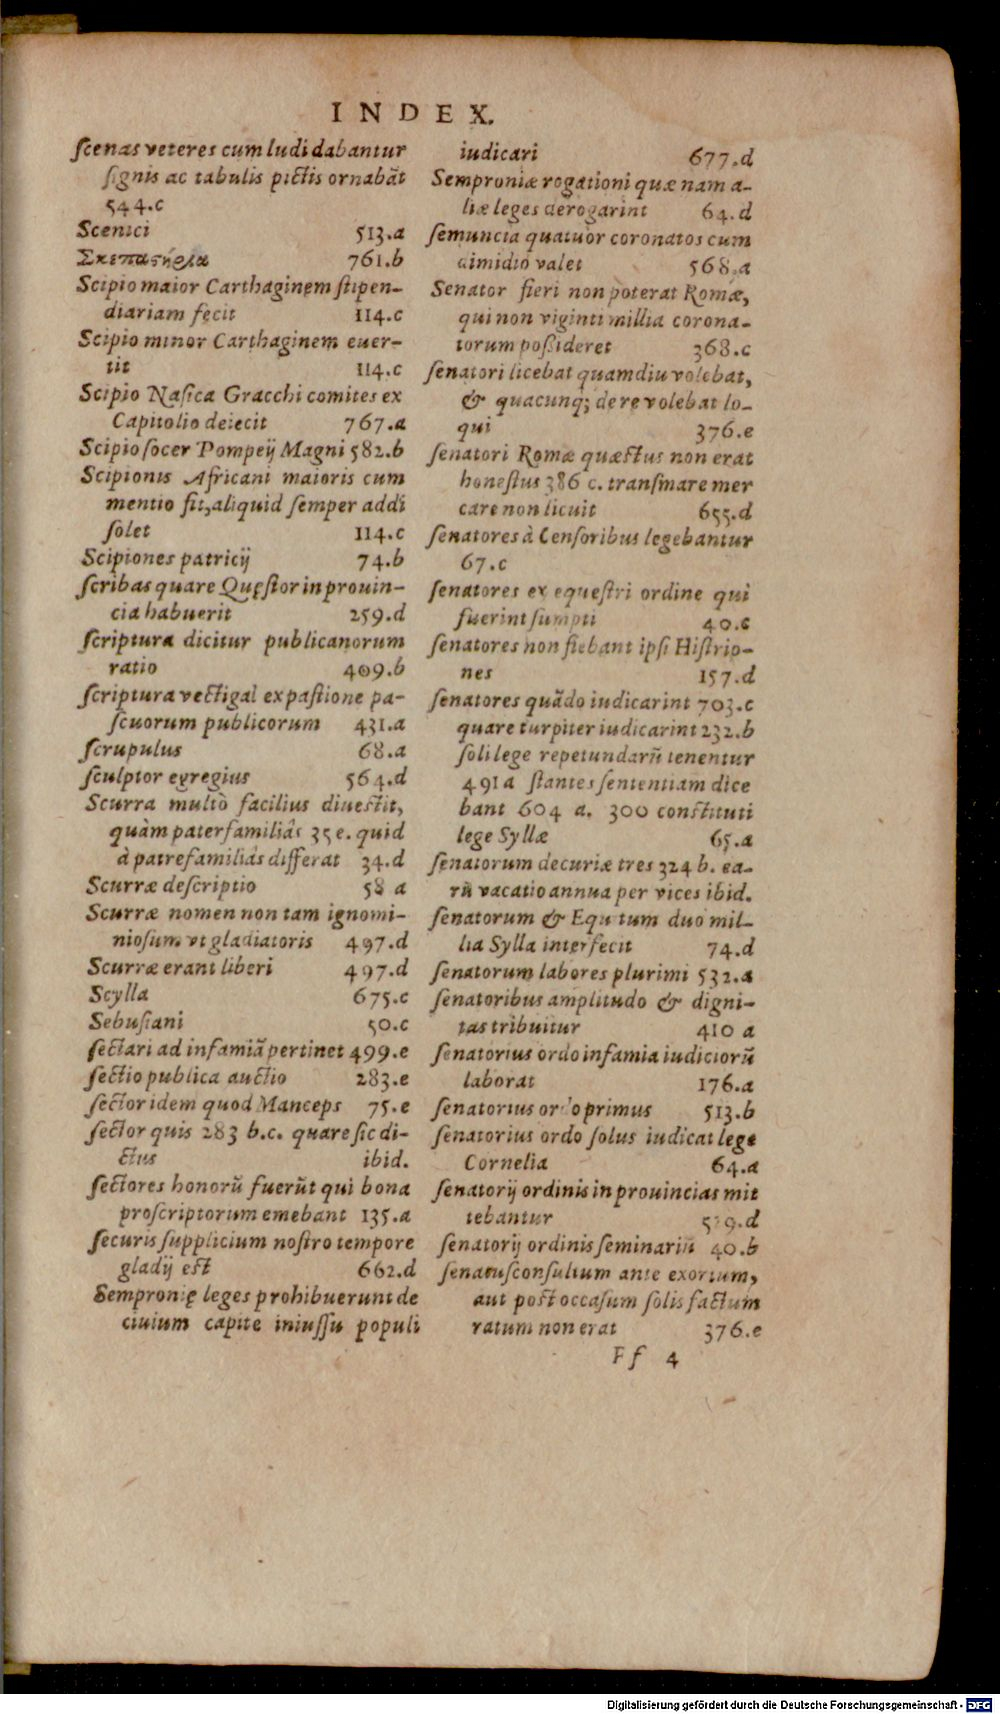 INDEX.
ſcenas veteres cum ludi dabantur
ſignis ac tabulis pictis ornabāt
544.c
Scenici 513.a
Scipio maior Carthaginem ſtipen-
diariam fecit 114.c
Scipio minor Carthaginem euer-
tit 114.c
Scipio Naſica Gracchi comites ex
Capitolio deiecit 767.a
Scipio ſocer Pompeij Magni 582.b
Scipionis Africani maioris cum
mentio fit, aliquid ſemper addi
ſolet 114.c
Scipiones patricij 74.b
ſcribas quare Quęſtor in prouin-
cia habuerit 259.d
ſcriptura dicitur publicanorum
ratio 409.b
ſcriptura vectigal ex paſtione pa-
ſcuorum publicorum 431.a
ſcrupulus 68.a
ſculptor egregius 564.d
Scurra multò facilius diueſtit,
quàm paterfamiliâs 35 e. quid
à patrefamiliâs differat 34.d
Scurræ deſcriptio 58 a
Scurræ nomen non tam ignomi-
nioſum vt gladiatoris 497.d
Scurræ erant liberi 497.d
Scylla 675.c
Sebuſiani 50.c
ſectari ad infamiā pertinet 499.e
ſectio publica auctio 283.e
ſector idem quod Manceps 75.e
ſector quis 283 b.c. quare ſic di-
ctus ibid.
ſectores honorū fuerūt qui bona
proſcriptorum emebant 135.a
ſecuris ſupplicium noſtro tempore
gladij eſt 662.d
Sempronię leges prohibuerunt de
ciuium capite iniuſſu populi
iudicari 677.d
Semproniæ rogationi quæ nam a-
liæ leges derogarint 64.d
ſemuncia quatuor coronatos cum
dimidio valet 568.a
Senator fieri non poterat Romæ,
qui non viginti millia corona-
torum poßideret 368.c
ſenatori licebat quamdiu volebat,
& quacunq; de re volebat lo-
qui 376.e
ſenatori Romæ quæſtus non erat
honeſtus 386 c. tranſmare mer
care non licuit 655.d
ſenatores à Cenſoribus legebantur
67.c
ſenatores ex equeſtri ordine qui
fuerint ſumpti 40.c
ſenatores non fiebant ipſi Hiſtrio-
nes 157.d
ſenatores quādo iudicarint 703.c
quare turpiter iudicarint 232.b
ſoli lege repetundarū tenentur
491 a ſtantes ſententiam dice
bant 604 a. 300 conſtituti
lege Syllæ 65.a
ſenatorum decuriæ tres 324 b. ea-
rū vacatio annua per vices ibid.
ſenatorum & Equitum duo mil-
lia Sylla interfecit 74.d
ſenatorum labores plurimi 532.a
ſenatoribus amplitudo & digni-
tas tribuitur 410 a
ſenatorius ordo infamia iudiciorū
laborat 176.a
ſenatorius ordo primus 513.b
ſenatorius ordo ſolus iudicat lege
Cornelia 64.a
ſenatorij ordinis in prouincias mit
tebantur
ſenatorij ordinis ſeminariū 40.b
ſenatuſconſultum ante exortum,
aut poſt occaſum ſolis factum
ratum non erat 376.e
Ff 4
Digitalisierung gefördert durch die Deutsche Forschungsgemeinschaft - DFG